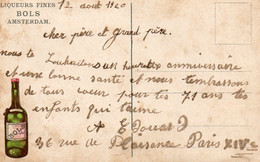 LIQUEURS FINES
BOLS
AMSTERDAM.
12 août 1920
cher père et Grand père.
nous te souhaitons un heureux anniversaire
et une bonne santé et nous t'embrassons
de tous cœur pour tes 71 ans tes
enfants qui t'aime
A Edouard
36 rue de Plaisance Paris XIVe